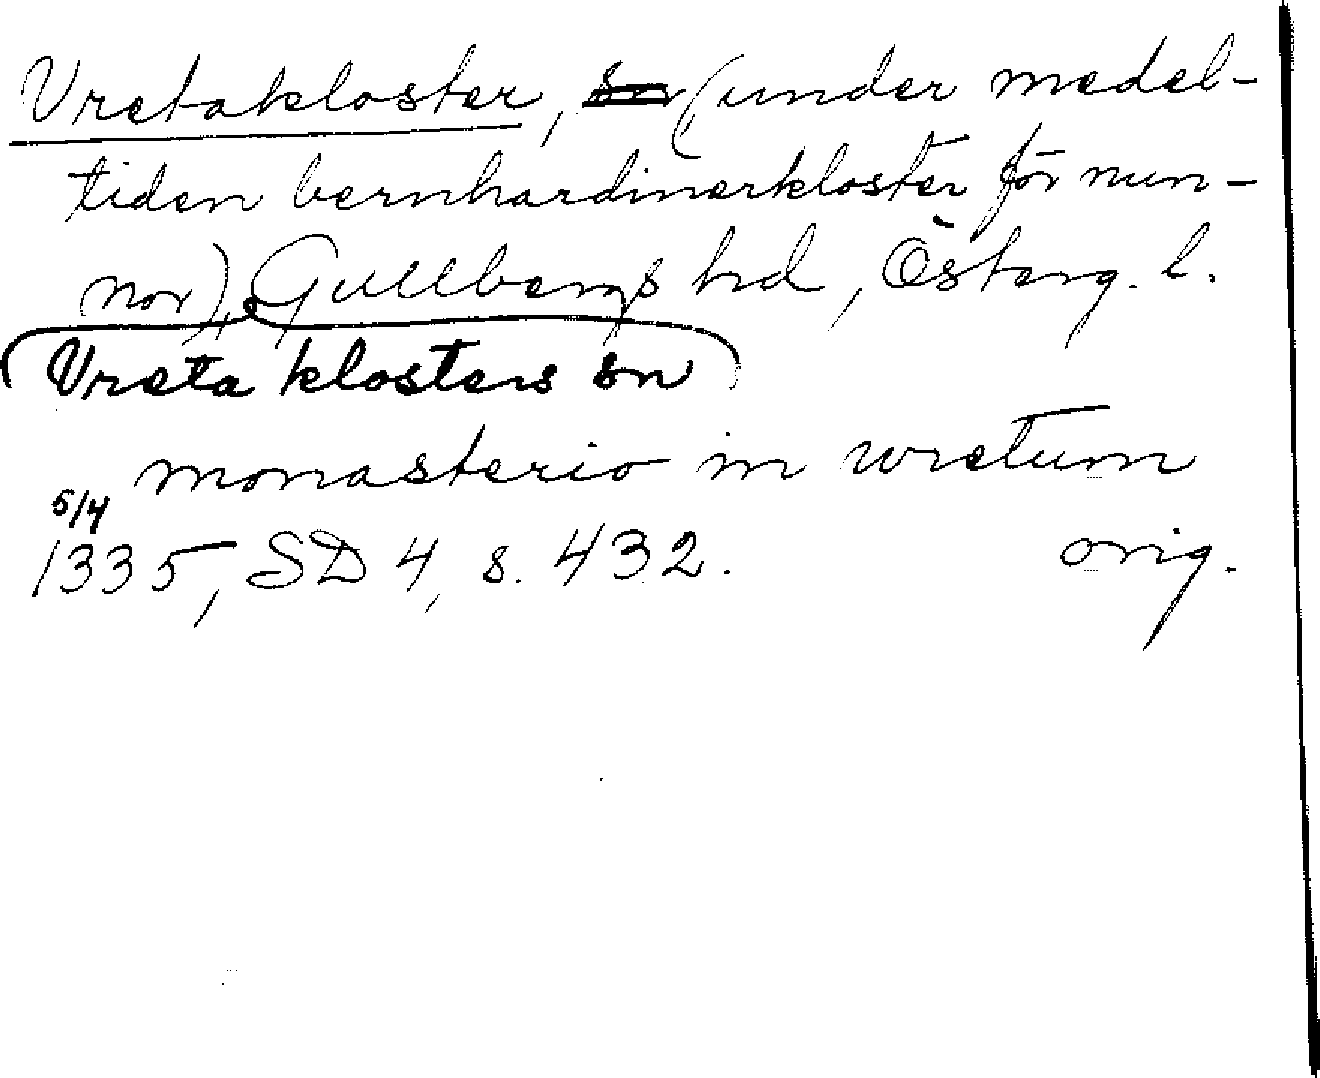 Vretakloster, sn (under medel-
tiden bernhardinerkloster för nun-
nor), Gullbergs hd, Österg. l.
Vreta klosters sn
monasterio in wretum
5/4
1335, SD 4, s. 432. orig.